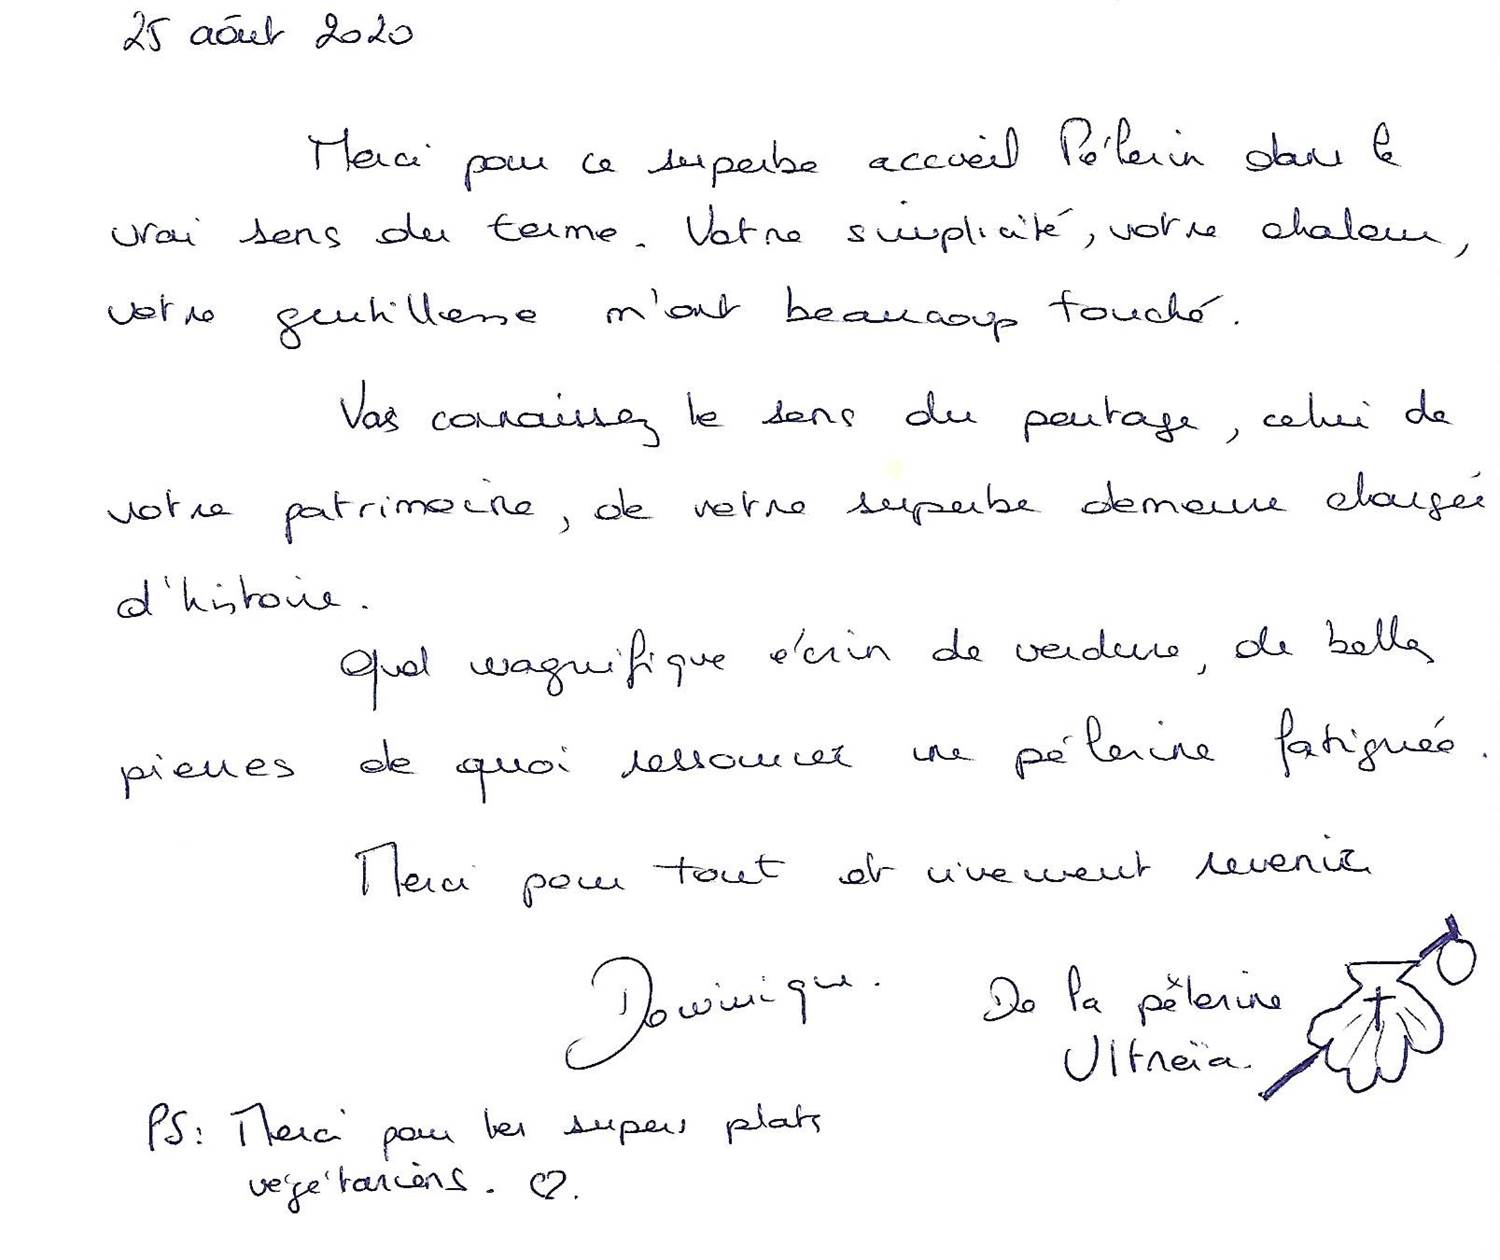 25 août 2020
Merci pour ce superbe accueil Pélerin dans le
vrai sens du terme. Votre simplicité, votre chaleur,
votre gentillesse m'ont beaucoup touché.
Vous connaissez le sens du partage, celui de
votre patrimoine, de votre superbe demeure chargée
d'histoire.
Quel magnifique écrin de verdure, de belles
pierres de quoi ressourcer une pélerine fatiguée.
Merci pour tout et vivement revenir
Dominique.
De la pélerine
Ultreïa.
PS: Merci pour les supers plats
végétariens. ♡.